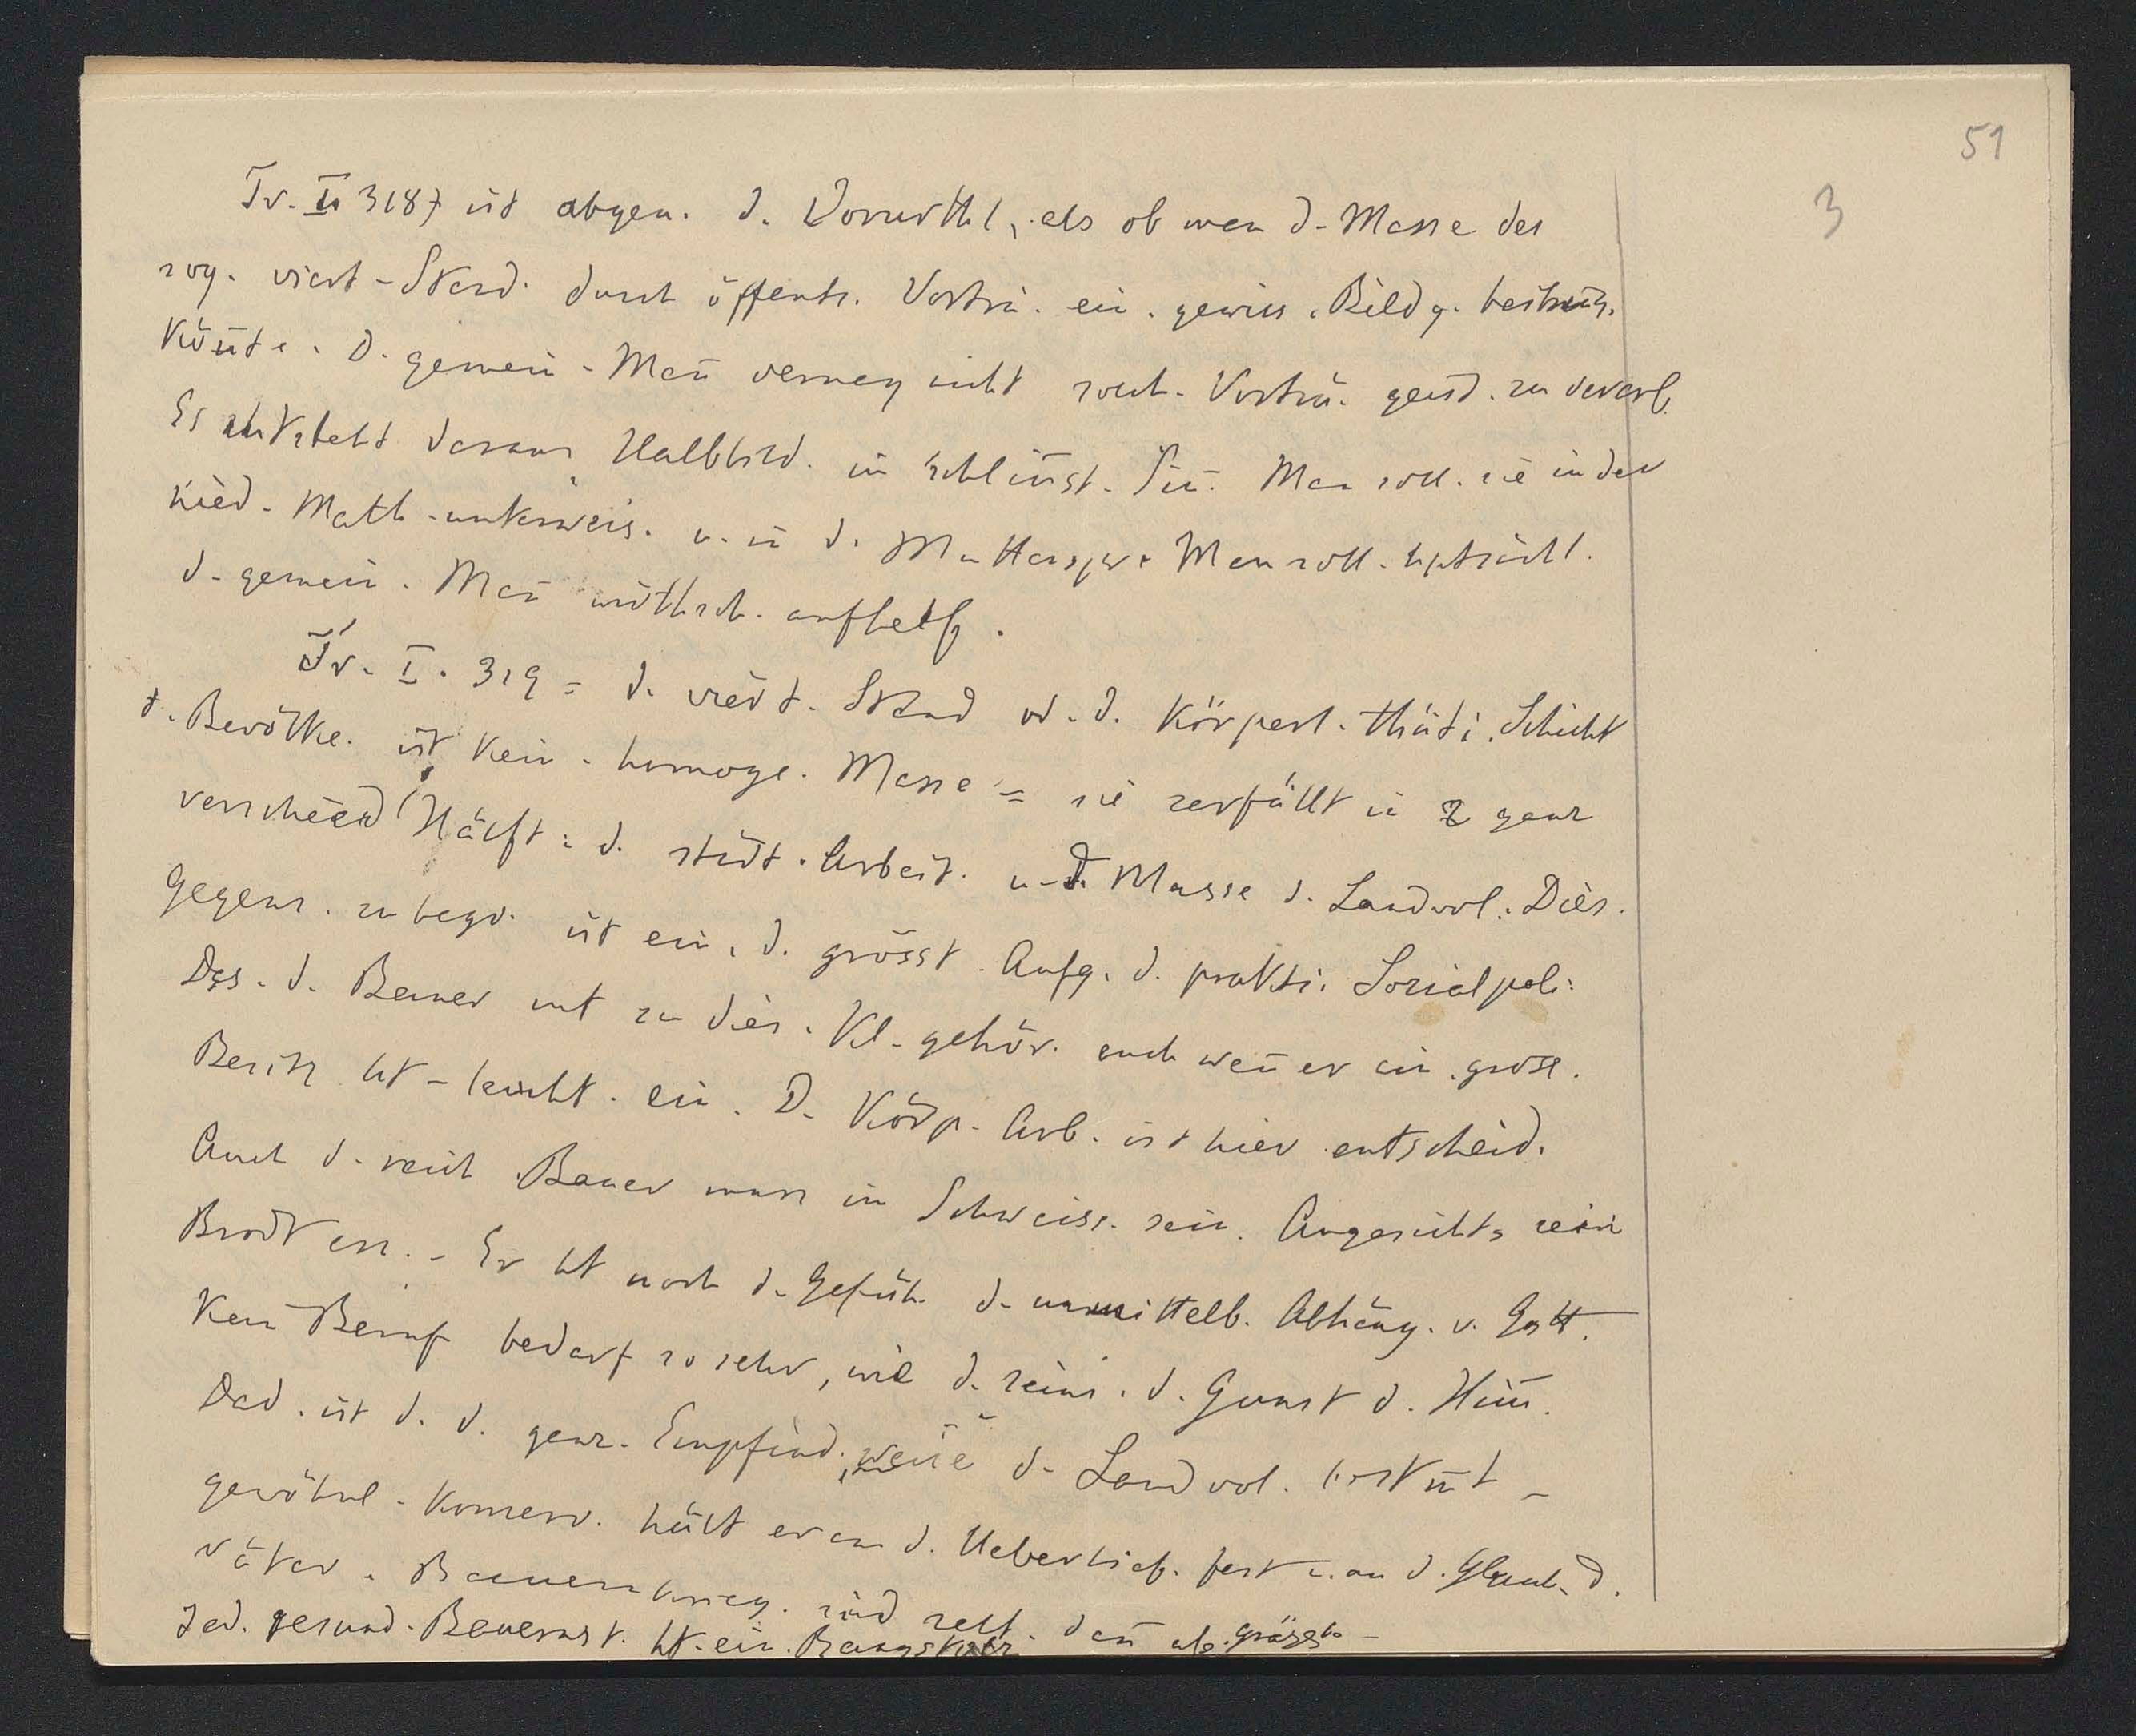 51
3
Tr. I 318) ist abgen. d. Vorurthl, als ob man d. Masse des
sog. viert. Stand. durch öffentl. Vorträ. ein. gewiss. Bildg. beibring.
könnte. D. gemein. Man̄ vermag nicht solch. Vorträ. geist. zu verarb.
Es entsteht daraus Halbbild. im schlim̄st. Sin̄. Man soll. sie in der
nied. Math. unterweis. u. in d. Mutterspr. Man soll. hptsächl.
d. gemein. Man̄ wirthsch. aufhelf.
Tr. I. 319 = d. viert. Stand od. d. körperl. thäti. Schicht
d. Bevölke. ist kein. homoge. Masse = sie zerfällt in 2 ganz
verschied. Hälft: d. städt. Arbeit. u. d. Masse d. Landvol. Dies.
Gegens. zu begr. ist ein. d. grösst. Aufg. d. prakti. Sozialpoli.
Das. d. Bauer mit zu dies. Kl. gehör. auch wen̄ er ein. gross.
Besitz ht - leucht. ein. D. Körp. Arb. ist hier entscheid.
Auch d. reich Bauer muss im Schweiss. sein. Angesichts sein
Brodt ess. - Er ht noch d. Gefüh. d. unmittelb. Abhäng. v. Gott.
Kein Beruf bedarf so sehr, wie d. seine. d. Gunst d. Him̄.
Dad. ist d. d. ganz. Empfind. weise d. Landvol. bestim̄t -
gewöhnl. konserv. hält er an d. Ueberlief. fest u. an d. Glaub. d.
Väter. Bauernkrieg. sind selt. dan̄ ab. grässl. -
Jed. gesund. Bauernst. ht. ein.